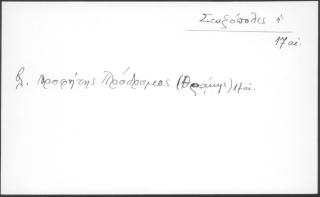 Σκυζόπολις ἡ
17 αἰ.
βλ. Προφήτης Πρόδρομος (Θράκης) 17 αἰ.